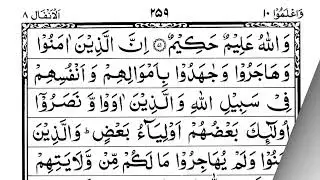 وَاعْلَمُوْٓا ١٠ ٢٥٩ اَلْاَنْفَال ٨
وَاللّٰهُ عَلِيْمٌ حَكِيْمٌ ۝ اِنَّ الَّذِيْنَ اٰمَنُوْا
وَهَاجَرُوْا وَجٰهَدُوْا بِاَمْوَالِهِمْ وَاَنْفُسِهِمْ
فِيْ سَبِيْلِ اللّٰهِ وَالَّذِيْنَ اٰوَوْا وَّنَصَرُوْٓا
اُولٰٓئِكَ بَعْضُهُمْ اَوْلِيَآءُ بَعْضٍ ؕ وَالَّذِيْنَ
اٰمَنُوْا وَلَمْ يُهَاجِرُوْا مَا لَكُمْ مِّنْ وَّلَايَتِهِمْ